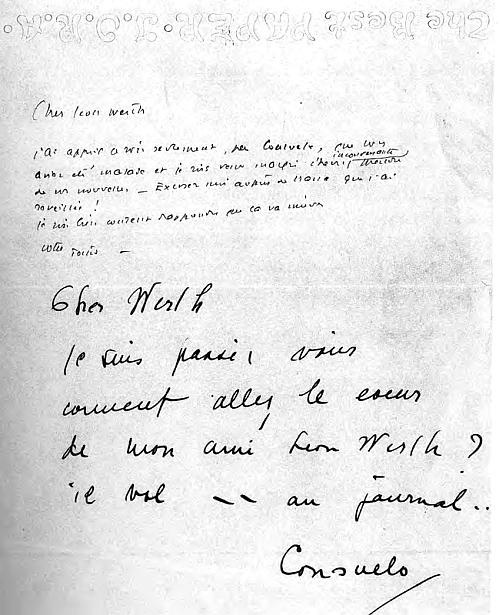 Cher Leon Werth
j'ai appris seulement, par Consuelo, que vous
inconvenante
avez été malade et je suis venu malgré l'heure
de vos nouvelles — Excusez moi auprès de que j'ai
réveillée !
je suis bien content d'apprendre que ça va mieux
votre Tonio —
Cher Werth
Je suis passé, voir
comment allez le coeur
de mon ami Leon Werth ?
il vol -- au journal..
Consuelo